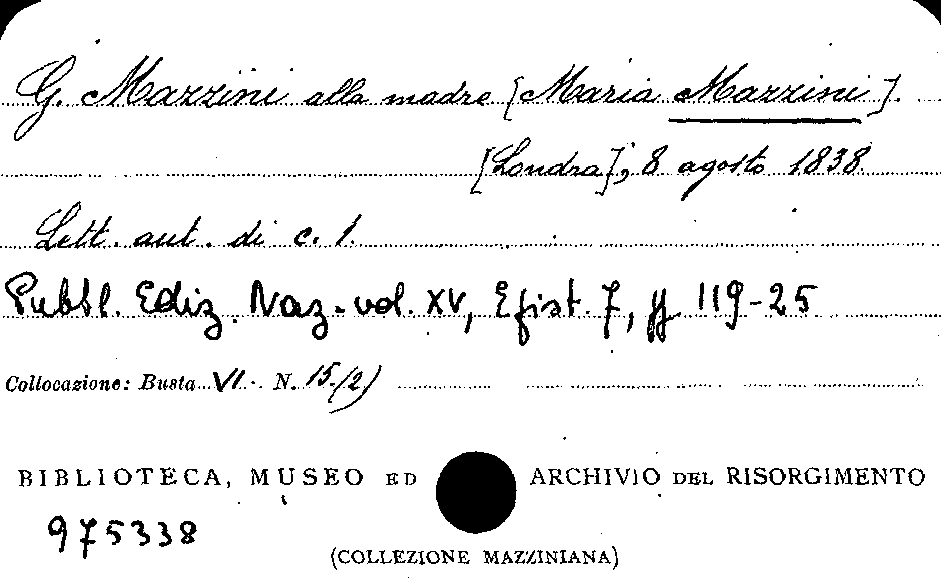 G. Mazzini alla madre [Maria Mazzini].
[Londra], 8 agosto 1838.
Lett. aut. di c. 1.
Pubbl. Ediz. Naz. vol. XV, Epist. 7, pp 119-25
Collocazione: Busta VI. N. 15(2)
BIBLIOTECA, MUSEO ED ARCHIVIO DEL RISORGIMENTO
975338
(COLLEZIONE MAZZINIANA)